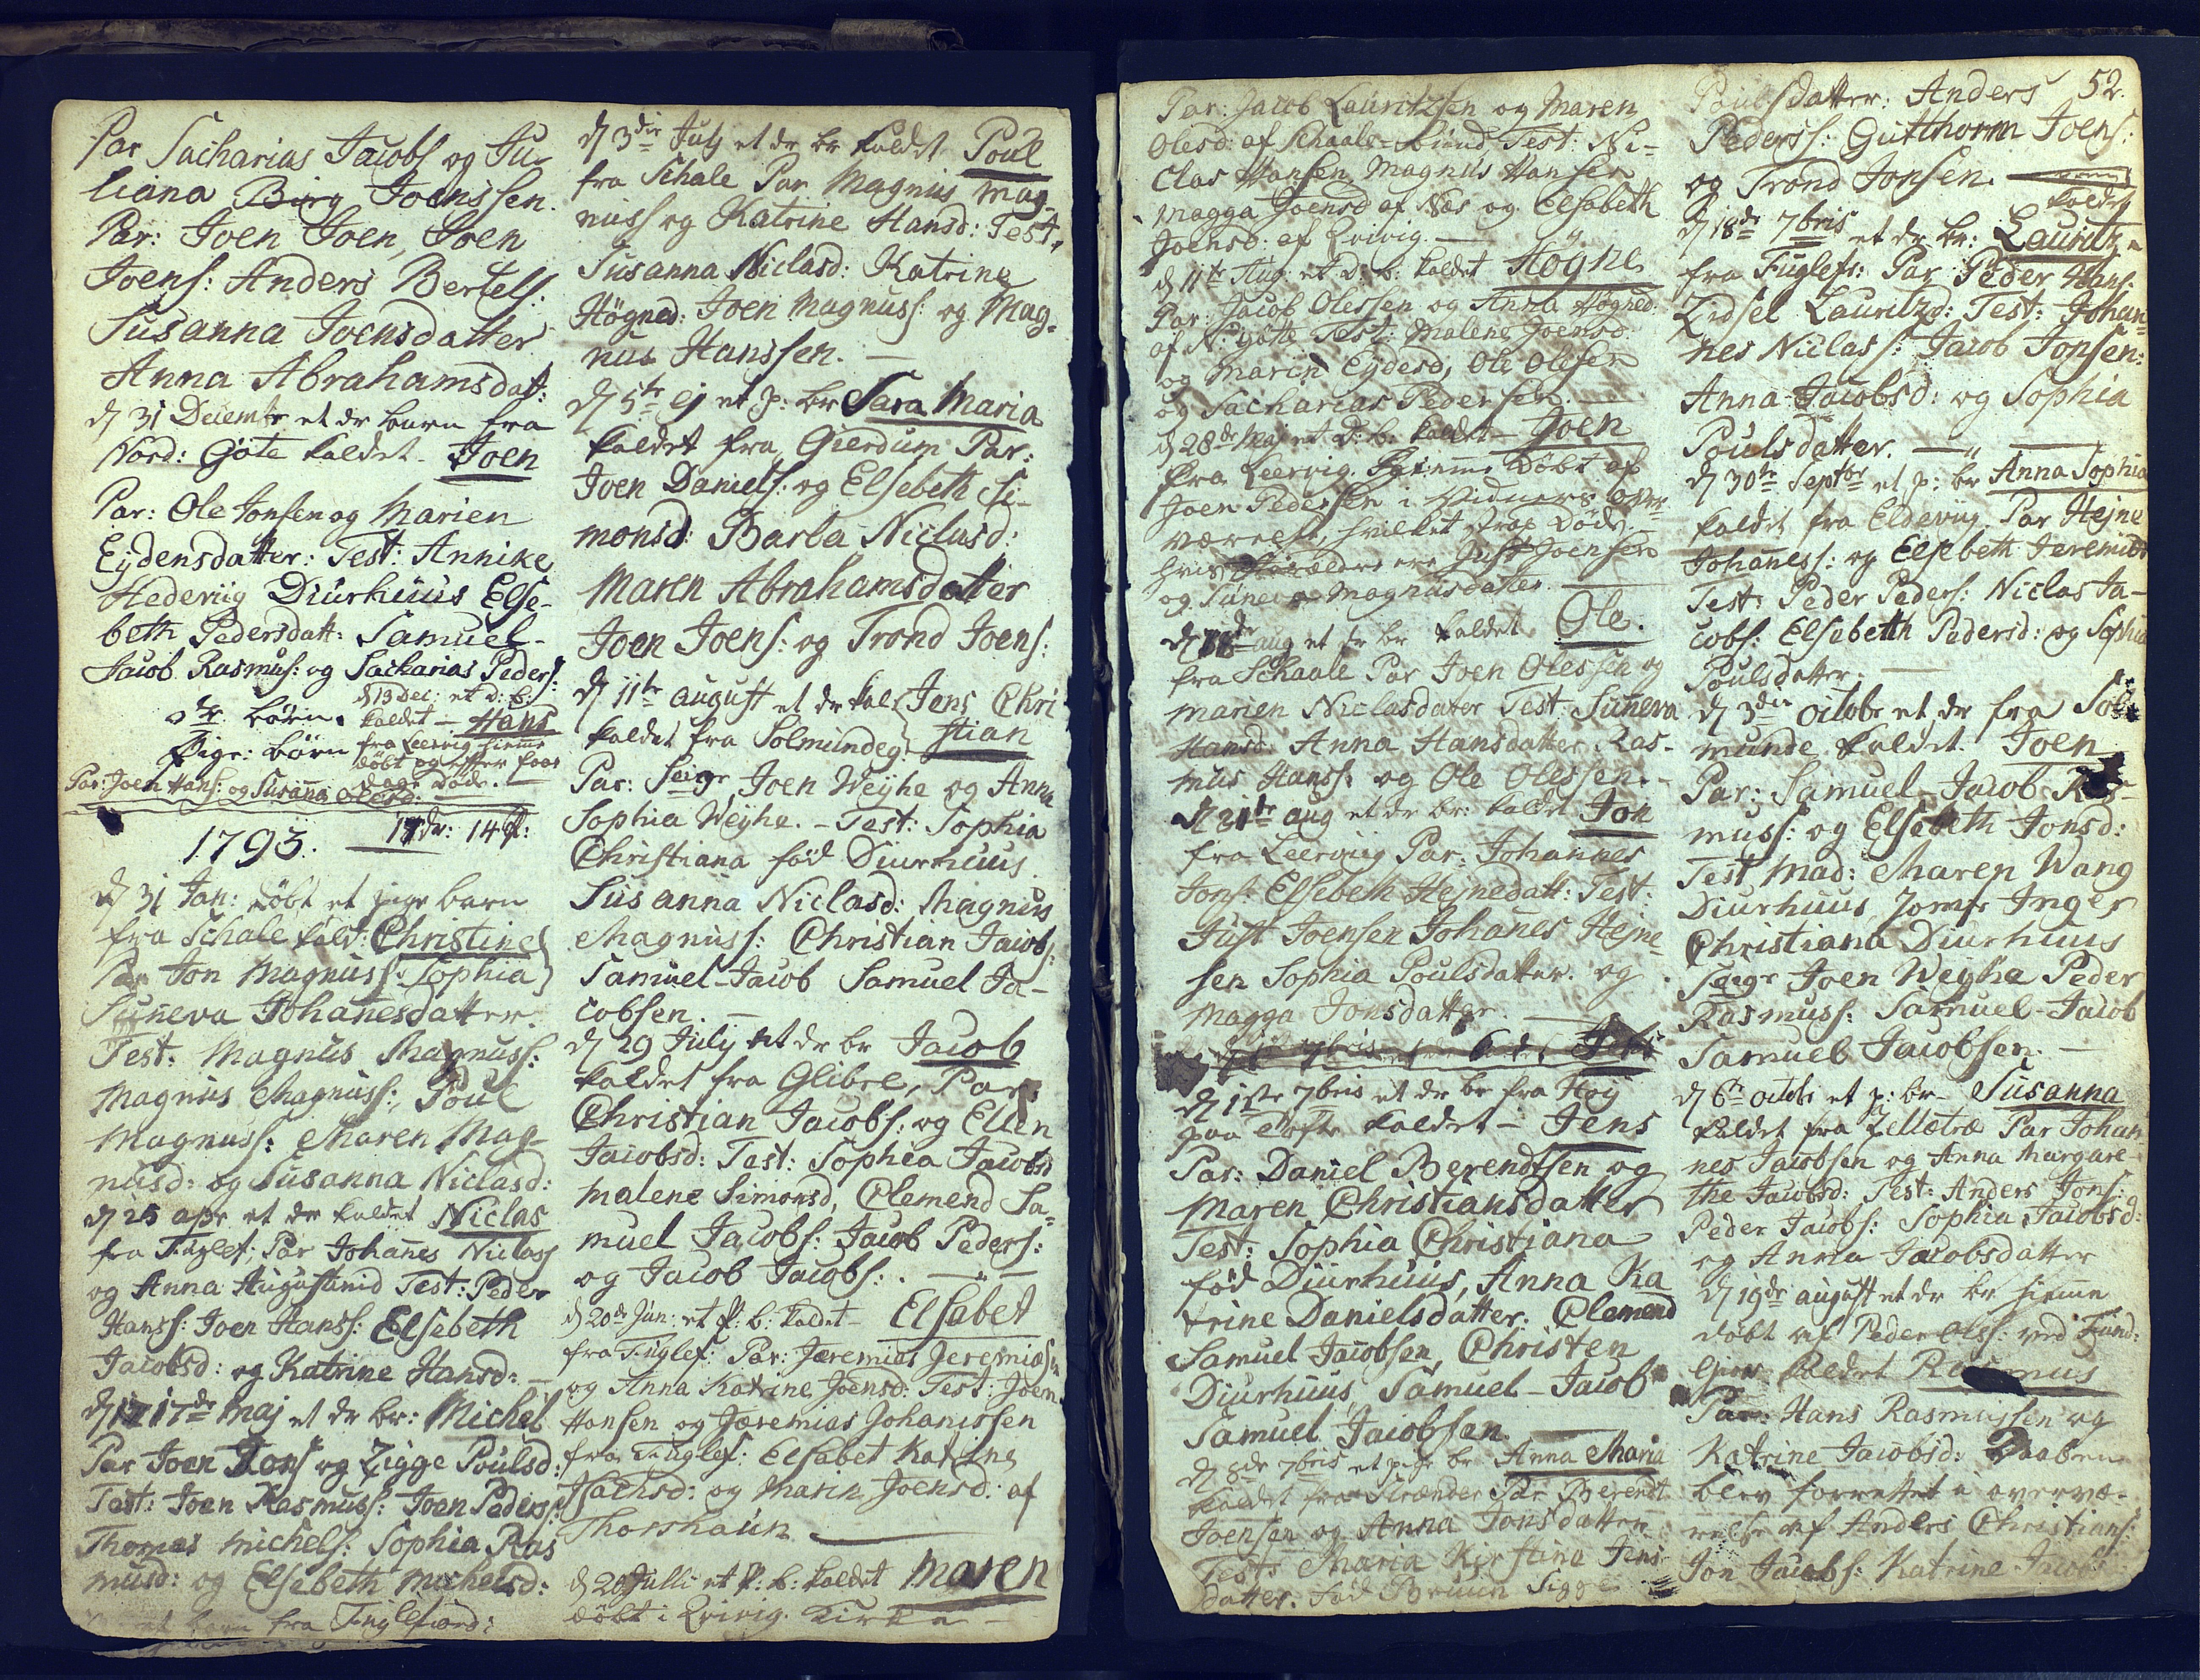 Par Sacharias Jacobs og Ju-
liana Joenssen.
Par: Joen Joen, Joen
Joens: Anders Bertels:
Susanna Joensdatter
Anna Abrahamsdatt:
d 31 Decembr et dr barn fra
Nord: Gøte kaldet Joen
Par: Ole Jonsen og Marien
Eydensdatter: Test: Annike
Hedevig Diurhuus Else-
beth Pedersdatt: Samuel-
Jacob Rasmus: og Sacharias Peders:
dr børn. d 13 Dec: et d: b:
kaldet - Hans
Pige: børn fra Leervig hiemme
døbt og efter faae
dage døde. -
Par: Joen Hans: og Susanna Olesd:
1793. 17 dr: 14 p:
d 31 Jan: døbt et pige barn
fra Schale kald: Christine
Par Jon Magnuss: Sophia
Suneva Johanesdatter.
Test: Magnus Magnuss:
Magnus Magnuss: Poul
Magnuss: Maren Mag-
nusd: og Susanna Niclasd:
d 25 apr et dr kaldet Niclas
fra Fuglef: Par Johanes Niclass
og Anna Test: Peder
Hanss: Joen Hanss: Elsebeth
Jacobsd: og Katrine Hansd: -
d 17de Maj et dr br: Michel
Par Joen Jons og Zigge Poulsd:
Test: Joen Rasmuss: Joen Peders:
Thomas Michels: Sophia Ras
musd: og Elsebeth Michelsd:
barn fra Fuglefiord:
d 3die July et dr br kaldet Poul
fra Schale Par Magnus Mag-
nuss og Katrine Hansd: Test:
Susanna Niclasd: Katrine
Høgned: Joen Magnuss: og Mag-
nus Hanssen. -
d 5te ej et p: br Sara Maria
kaldet fra Gierdum Par:
Joen Daniels: og Elsebeth Si-
monsd: Barba Niclasd:
Maren Abrahamsdatter
Joen Joens: og Trond Joens:
d 11te august et dr kal Jens Chri
kaldet fra Solmundeg: stian
Par: Joen Weyhe og Anna
Sophia Weyhe. - Test: Sophia
Christiana fød Diurhuus
Susanna Niclasd: Magnus
Magnuss: Christian Jacobs:
Samuel-Jacob Samuel Ja-
cobsen. -
d 29 July et dr br Jacob
kaldet fra Glibre, Par:
Christian Jacobs: og Ellen
Jacobsd: Test: Sophia Jacobsd
Malene Simonsd, Clemend Sa-
muel Jacobs: Jacob Peders:
og Jacob Jacobs: . -
d 20de Jun: et p: b: kaldet - Elsebet
fra Fuglef: Par: Jæremias Jeremias
og Anna Katrine Joensd: Test: Joen
Hansen og Jæremias Johanissen
fra Fuglef: Elsabet Katrine
og Marin Joensd: af
Thorshaun
d 20 Julli et p: b: kaldet Maren
døbt i Qvivig Kirke -
52.
Par: Jacob Lauritzsen og Maren
Olesd: af Schaale- Test: Ni-
clas Hansen, Magnus Hansen
Magga Joensd af Næs og Elsebeth
Joensd: af Qvivig. -
d 11te Aug: et d: b: kaldet Høgne
Par: Jacob Olessen og Anna Høgned:
af N: Gøtte Test: Malene Joensd
og Marin Eydesd, Ole Olesen
og Sacharias Pedersen.
d 28de Maj et D: b: kaldet Joen
fra Leervig. hiemme Døbt af
Joen Pedersen i Vidners over-
værelse, hvilket strax Døde. -
hvis Forældre ere Just Joensen
og Suneva Magnusdatter. -
d aug et dr br kaldet Ole.
fra Schaale Par Joen Olessen og
Marien Niclasdater Test: Suneva
Hansd: Anna Hansdatter Ras-
mus Hanss: og Ole Olessen. -
d 21te aug et dr br: kaldet Jon
fra Leervig Par: Johannes
Jons: Elsebeth Hejnedatt: Test:
Just Joensen Johanes Hejne
sen Sophia Poulsdatter. og
Magga Jonsdatter. -
d 1ste 7bris et dr br fra Høÿ
paa Tofte kaldet - Jens
Par: Daniel Berendtsen og
Maren Christiansdatter
Test: Sophia Christiana
fød Diurhuus, Anna Ka
trine Danielsdatter. Clemend
Samuel Jacobsen, Christen
Diurhuus, Samuel-Jacob
Samuel Jacobsen.
d 8de 7bris et pige br Anna Maria
kaldet fra Strænder Par Berendt
Joensen og Anna Jonsdatter
Test: Maria Kirstina Jens-
datter: fød Bruun Sigge
Poulsdatter: Anders
Peders: Gutthorm Joens:
og Trond Jonsen.
kaldet
d 18de 7bris et dr br: Lauritz
fra Fuglefr: Par Peder Hans:
Zidsel Lauritzd: Test: Johan-
nes Niclass: Jacob Jonsen:
Anna Jacobsd: og Sophia
Poulsdatter. -
d 30te Septbr et p: br Anna Sophia
kaldet fra Eldevig Par Hejne
Johaness: og Elsebeth Jeremiæ
Test: Peder Peders: Niclas Ja-
cobs: Elsebetth Pedersd: og Sophia
Poulsdatter. -
d 3die octobr et dr fra Sol-
munde kaldet Joen
Par: Samuel-Jacob Ras-
muss: og Elsebeth Jonsd:
Test Mad: Maren Wang
Diurhuus, Jomfr Inger
Christiana Diurhuus
Joen Weyhe Peder
Rasmuss: Samuel-Jacob
Samuel Jacobsen. -
d 6te octobr et p: br - Susanna
kaldet fra Par Johan
nes Jacobsen og Anna Margare-
the Jacobsd: Test: Anders Jons:
Peder Jacobs: Sophia Jacobsd:
og Anna Jacobsdatter
d 19de august et dr br hiemme
døbt af Peder Olss: ved Fund:
kaldet Rasmus
Par: Hans Rasmussen og
Katrine Jacobsd: Daaben
blev forrettet i overvæ-
relse af Anders Christians:
Jon Jacobs: Katrine Jacobs